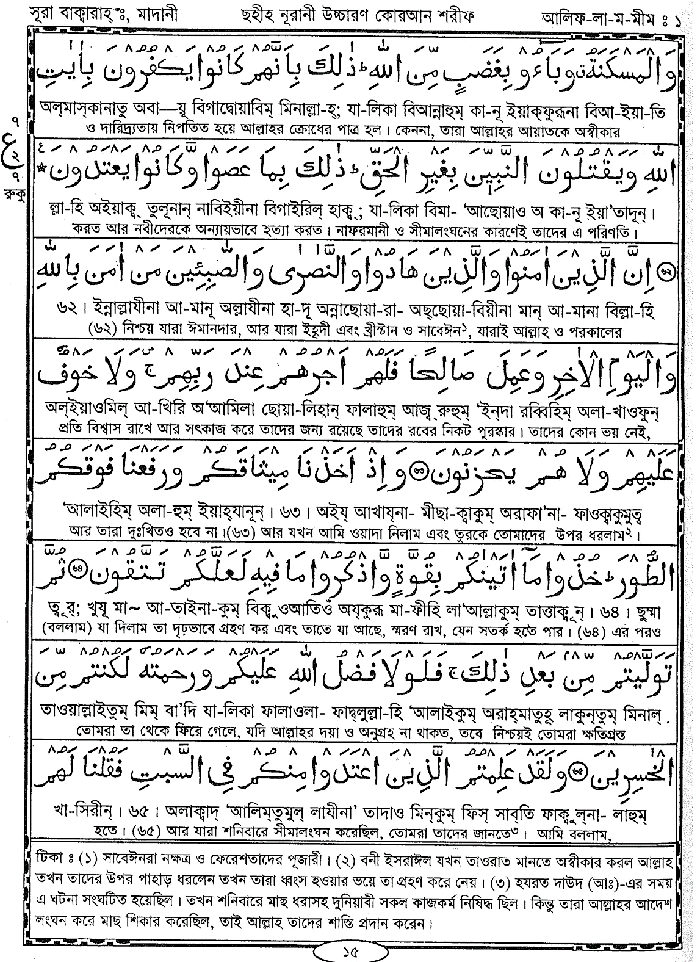 সূরা বাক্বারাহ্ঃ, মাদানী ছহীহ নূরানী উচ্চারণ কোরআন শরীফ আলিফ-লা-ম-মীম ঃ ১
وَالْمَسْكَنَةُ وَبَاءُو بِغَضَبٍ مِّنَ اللهِ ذٰلِكَ بِأَنَّهُمْ كَانُوا يَكْفُرُونَ بِاٰيٰتِ
অল্‌মাস্‌কানাতু অবা—য়ূ বিগাদ্বোয়াবিম্ মিনাল্লা-হ্; যা-লিকা বিআন্নাহুম্ কা-নূ ইয়াক্‌ফুরূনা বিআ-ইয়া-তি
ও দারিদ্র্যতায় নিপতিত হয়ে আল্লাহর ক্রোধের পাত্র হল। কেননা, তারা আল্লাহর আয়াতকে অস্বীকার
ع
রুকু
اللهِ وَيَقْتُلُونَ النَّبِيّنَ بِغَيْرِ الْحَقِّ ذٰلِكَ بِمَا عَصَوا وَّكَانُوا يَعْتَدُونَ
ল্লা-হি অইয়াক্বু তুলূনান্ নাবিইয়ীনা বিগাইরিল্ হাক্ব্; যা-লিকা বিমা- 'আছোয়াও অ কা-নূ ইয়া'তাদূন্।
করত আর নবীদেরকে অন্যায়ভাবে হত্যা করত। নাফরমানী ও সীমালংঘনের কারণেই তাদের এ পরিণতি।
۝ إِنَّ الَّذِينَ اٰمَنُوا وَالَّذِينَ هَادُوا وَالنَّصٰرٰى وَالصّٰبِئِينَ مَنْ اٰمَنَ بِاللهِ
৬২। ইন্নাল্লাযীনা আ-মানূ অল্লাযীনা হা-দূ অন্নাছোয়া-রা- অছ্‌ছোয়া-বিয়ীনা মান্ আ-মানা বিল্লা-হি
(৬২) নিশ্চয় যারা ঈমানদার, আর যারা ইহুদী এবং খ্রীস্টান ও সাবেঈন১, যারাই আল্লাহ ও পরকালের
وَالْيَوْمِ الْاٰخِرِ وَعَمِلَ صَالِحًا فَلَهُمْ أَجْرُهُمْ عِنْدَ رَبِّهِمْ وَلَا خَوْفٌ
অল্‌ইয়াওমিল্ আ-খিরি অ'আমিলা ছোয়া-লিহান্ ফালাহুম্ আজ্ব্‌ রুহুম্ 'ইন্‌দা রব্বিহিম্ অলা-খাওফুন্
প্রতি বিশ্বাস রাখে আর সৎকাজ করে তাদের জন্য রয়েছে তাদের রবের নিকট পুরস্কার। তাদের কোন ভয় নেই,
عَلَيْهِمْ وَلَا هُمْ يَحْزَنُونَ ۝ وَإِذْ أَخَذْنَا مِيثَاقَكُمْ وَرَفَعْنَا فَوْقَكُمُ
'আলাইহিম্ অলা-হুম্ ইয়াহ্‌যানূন্। ৬৩। অইয্ আখায্‌না- মীছা-ক্বাকুম্ অরাফা'না- ফাওক্বাকুমুত্ব্
আর তারা দুঃখিতও হবে না। (৬৩) আর যখন আমি ওয়াদা নিলাম এবং তূরকে তোমাদের উপর ধরলাম২।
الطُّورَ خُذُوا مَا اٰتَيْنٰكُمْ بِقُوَّةٍ وَّاذْكُرُوا مَا فِيهِ لَعَلَّكُمْ تَتَّقُونَ ۝ ثُمَّ
ত্বূর্; খুযূ মা~ আ-তাইনা-কুম্ বিক্বুওআতিওঁ অয্‌কুরূ মা-ফীহি লা'আল্লাকুম্ তাত্তাক্বূন্। ৬৪। ছুম্মা
(বললাম) যা দিলাম তা দৃঢ়ভাবে গ্রহণ কর এবং তাতে যা আছে, স্মরণ রাখ, যেন সতর্ক হতে পার। (৬৪) এর পরও
تَوَلَّيْتُمْ مِّنْ بَعْدِ ذٰلِكَ فَلَوْلَا فَضْلُ اللهِ عَلَيْكُمْ وَرَحْمَتُهُ لَكُنْتُمْ مِّنَ
তাওয়াল্লাইতুম্ মিম্ বা'দি যা-লিকা ফালাওলা- ফাদ্বলুল্লা-হি 'আলাইকুম্ অরাহ্‌মাতুহূ লাকুন্‌তুম্ মিনাল্
তোমরা তা থেকে ফিরে গেলে, যদি আল্লাহর দয়া ও অনুগ্রহ না থাকত, তবে নিশ্চয়ই তোমরা ক্ষতিগ্রস্ত
الْخٰسِرِينَ ۝ وَلَقَدْ عَلِمْتُمُ الَّذِينَ اعْتَدَوا مِنْكُمْ فِي السَّبْتِ فَقُلْنَا لَهُمْ
খা-সিরীন্। ৬৫। অলাক্বাদ্ 'আলিম্‌তুমুল্ লাযীনা' তাদাও মিন্‌কুম্ ফিস্ সাব্‌তি ফাক্বুল্‌না- লাহুম্
হতে। (৬৫) আর যারা শনিবারে সীমালংঘন করেছিল, তোমরা তাদের জানতে৩। আমি বললাম,
টিকা ঃ (১) সাবেঈনরা নক্ষত্র ও ফেরেশতাদের পূজারী। (২) বনী ইসরাঈল যখন তাওরাত মানতে অস্বীকার করল আল্লাহ
তখন তাদের উপর পাহাড় ধরলেন তখন তারা ধ্বংস হওয়ার ভয়ে তা গ্রহণ করে নেয়। (৩) হযরত দাউদ (আঃ)-এর সময়
এ ঘটনা সংঘটিত হয়েছিল। তখন শনিবারে মাছ ধরাসহ দুনিয়াবী সকল কাজকর্ম নিষিদ্ধ ছিল। কিন্তু তারা আল্লাহর আদেশ
লংঘন করে মাছ শিকার করেছিল, তাই আল্লাহ তাদের শাস্তি প্রদান করেন।
১৫